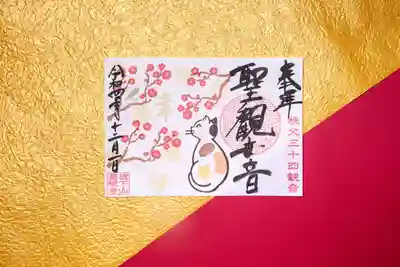 奉拝
秩父三十四観音
聖観世音
令和四年十二月一日